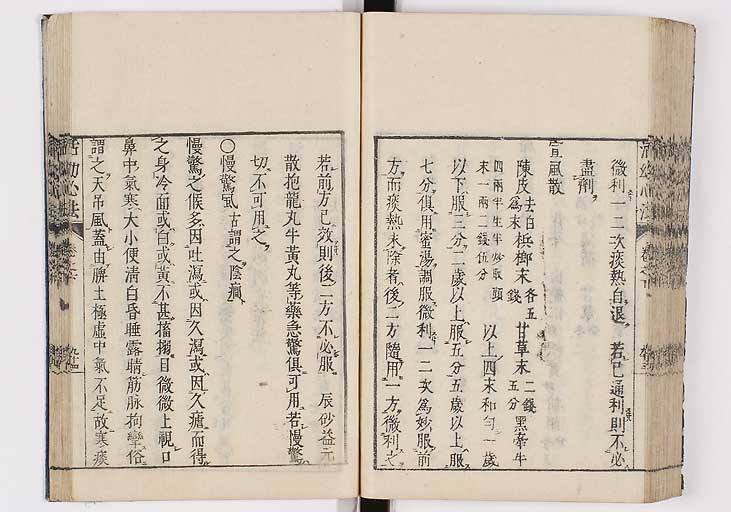 微利一二次痰熱自退若已通利則不必
盡劑
宣風散
陳皮去白檳榔末各五錢甘草末二錢五分黑牽牛
四兩半生半炒取頭末一兩二錢伍分以上四末和勻一歲
以下服三分二歲以上服五分五歲以上服
七分俱用蜜湯調服微利一二次為妙服前
方而痰熱未除者後二方隨用一方微利之
若前方已效則後二方不必服辰砂益元
散抱龍丸牛黃丸等藥急驚俱可用若慢驚
切不可用之
○慢驚風古謂之陰癇
慢驚之候多因吐瀉或因久瀉或因久瘧而得
之身冷面或白或黃不甚搐搦目微微上視口
鼻中氣寒大小便清白昏睡露睛筋脉拘攣俗
謂之天吊風蓋由脾土極虛中氣不足故寒痰
活幼心法
卷之下